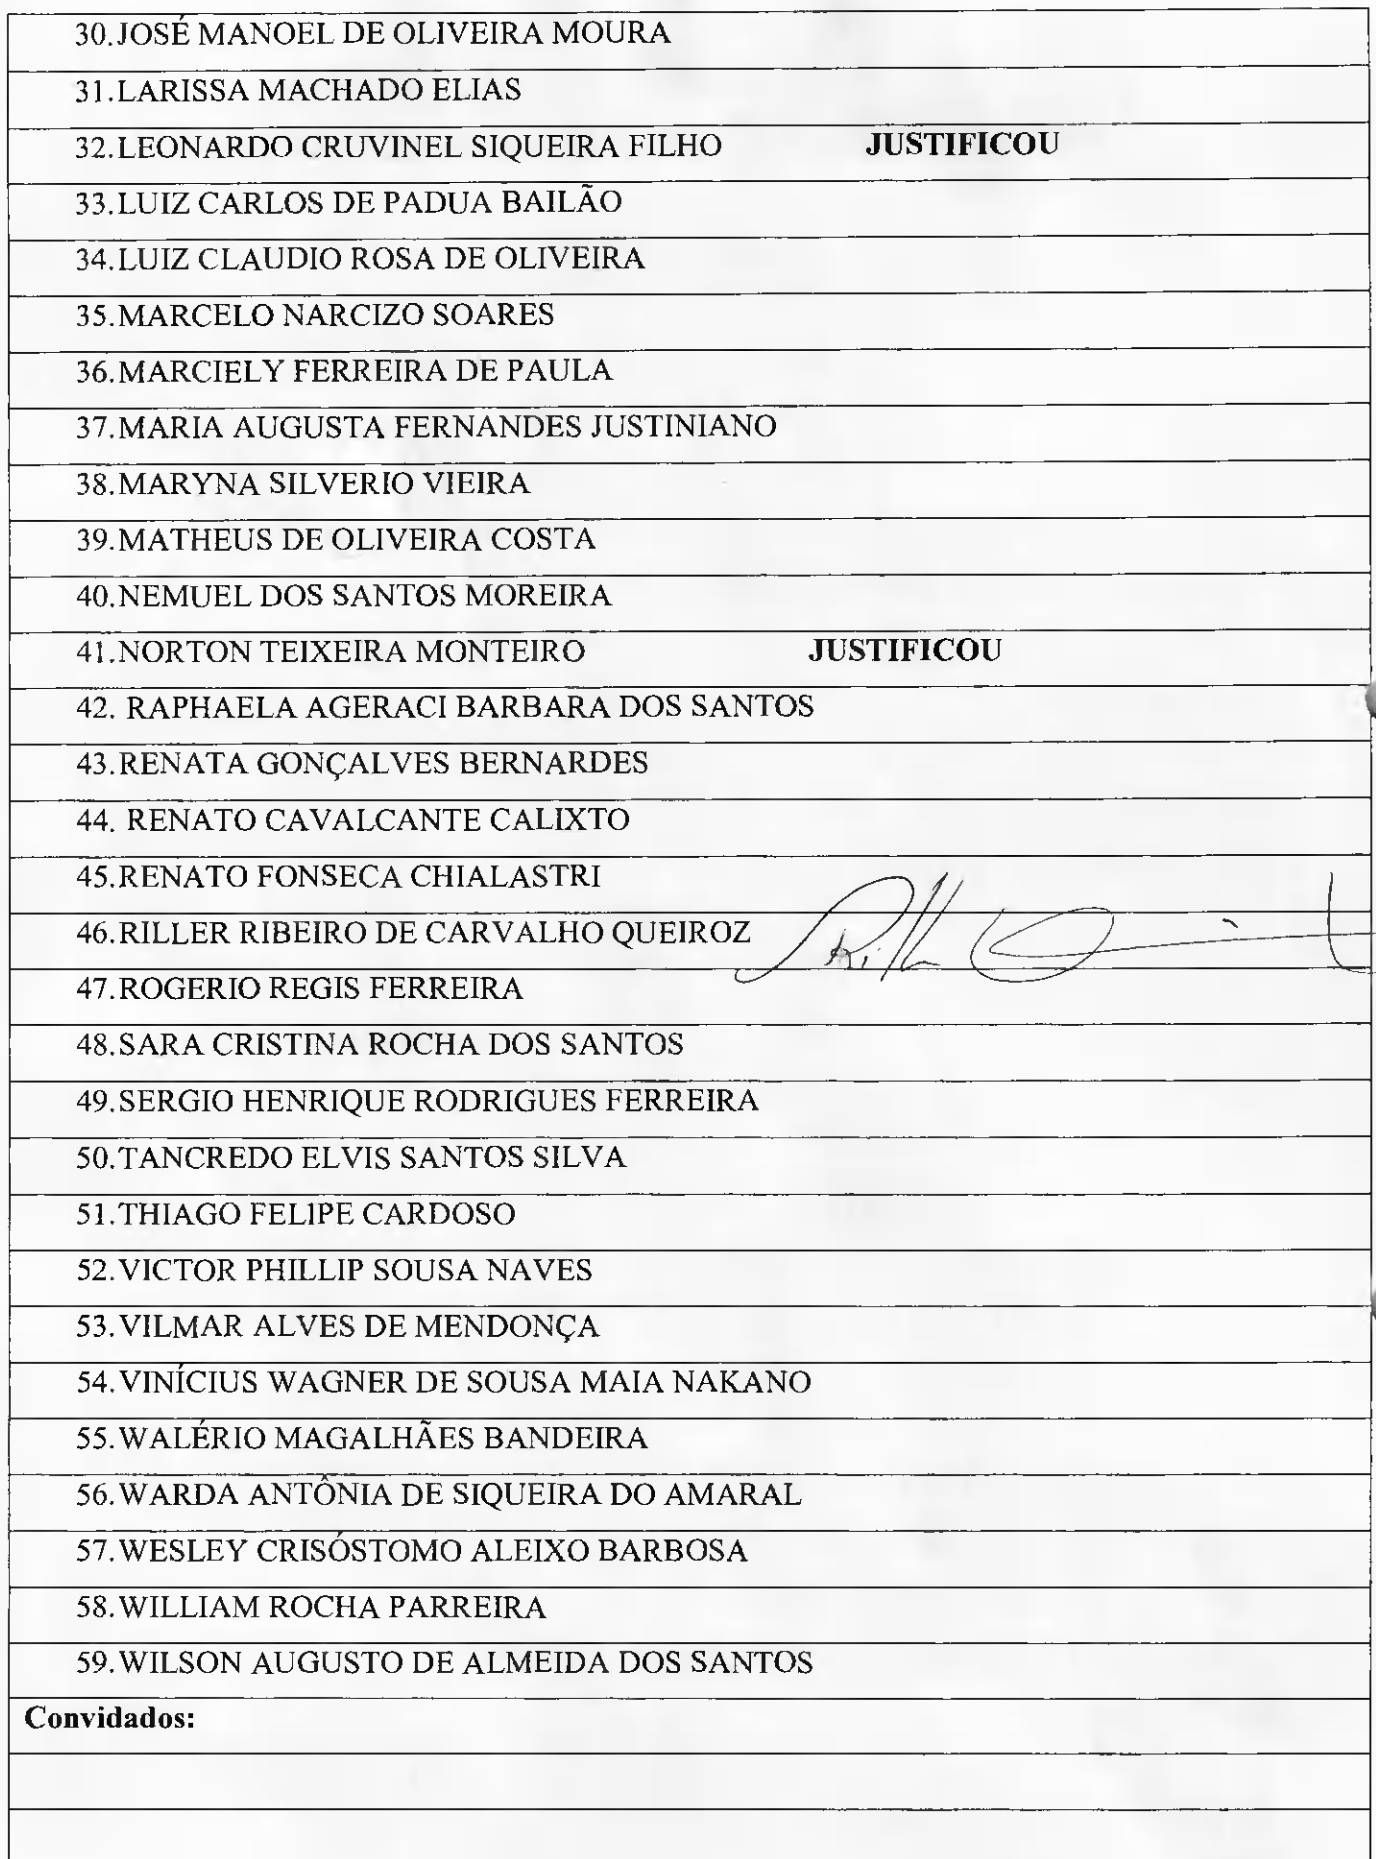 30.JOSÉ MANOEL DE OLIVEIRA MOURA
31.LARISSA MACHADO ELIAS
32.LEONARDO CRUVINEL SIQUEIRA FILHO JUSTIFICOU
33.LUIZ CARLOS DE PADUA BAILÃO
34.LUIZ CLAUDIO ROSA DE OLIVEIRA
35.MARCELO NARCIZO SOARES
36.MARCIELY FERREIRA DE PAULA
37.MARIA AUGUSTA FERNANDES JUSTINIANO
38.MARYNA SILVERIO VIEIRA
39.MATHEUS DE OLIVEIRA COSTA
40.NEMUEL DOS SANTOS MOREIRA
41.NORTON TEIXEIRA MONTEIRO JUSTIFICOU
42. RAPHAELA AGERACI BARBARA DOS SANTOS
43.RENATA GONÇALVES BERNARDES
44. RENATO CAVALCANTE CALIXTO
45.RENATO FONSECA CHIALASTRI
46.RILLER RIBEIRO DE CARVALHO QUEIROZ
47.ROGERIO REGIS FERREIRA
48.SARA CRISTINA ROCHA DOS SANTOS
49.SERGIO HENRIQUE RODRIGUES FERREIRA
50.TANCREDO ELVIS SANTOS SILVA
51.THIAGO FELIPE CARDOSO
52.VICTOR PHILLIP SOUSA NAVES
53.VILMAR ALVES DE MENDONÇA
54.VINÍCIUS WAGNER DE SOUSA MAIA NAKANO
55.WALÉRIO MAGALHÃES BANDEIRA
56.WARDA ANTÔNIA DE SIQUEIRA DO AMARAL
57.WESLEY CRISÓSTOMO ALEIXO BARBOSA
58.WILLIAM ROCHA PARREIRA
59.WILSON AUGUSTO DE ALMEIDA DOS SANTOS
Convidados: